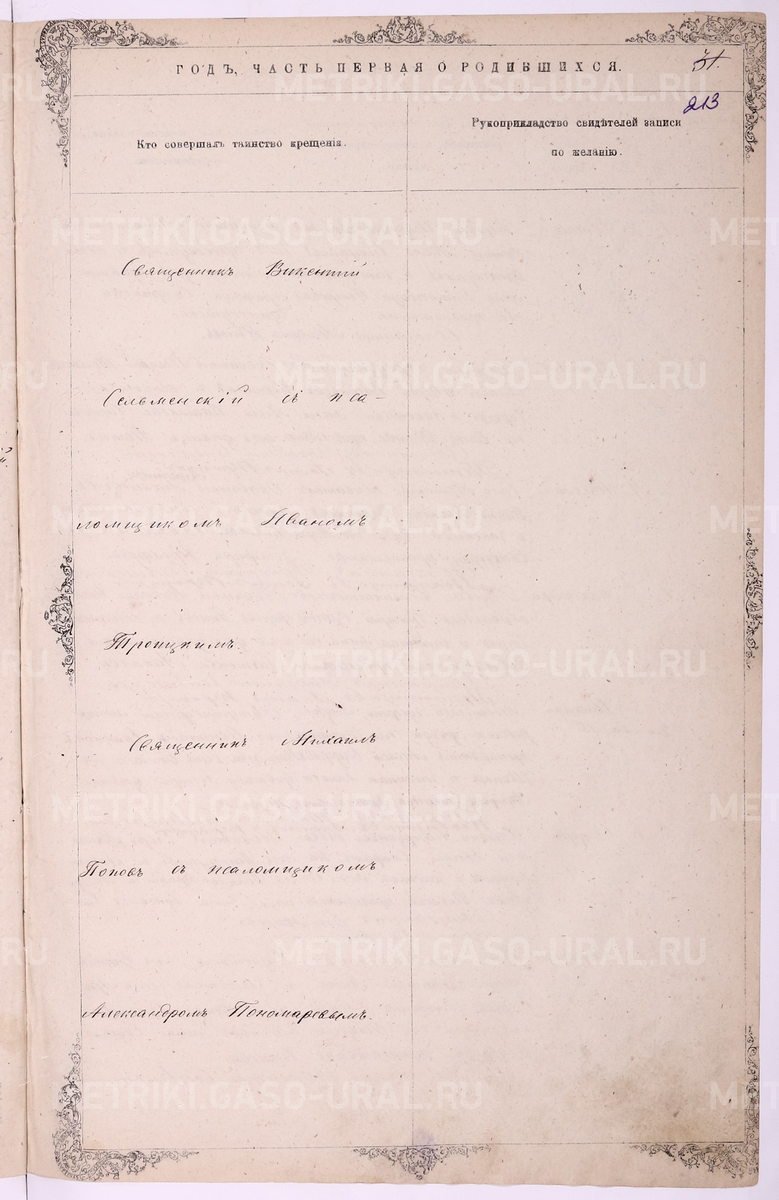 ГОДЪ, ЧАСТЬ ПЕРВАЯ О РОДИВШИХСЯ.
31.
213
Кто совершалъ таинство крещенія.
Рукоприкладство свидѣтелей записи
по желанію.
Священникъ Викентій
Сельменскій съ пса-
ломщикомъ Иваномъ
Троицкимъ.
Священникъ Михаилъ
Поповъ съ псаломщикомъ
Александромъ Пономаревымъ.
METRIKI.GASO-URAL.RU